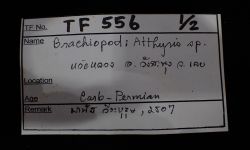 TF No. TF 556 1/2
Name Brachiopod; Athyris sp.
อ. วังสะพุง จ. เลย
Location
Age Carb-Permian
Remark 2507